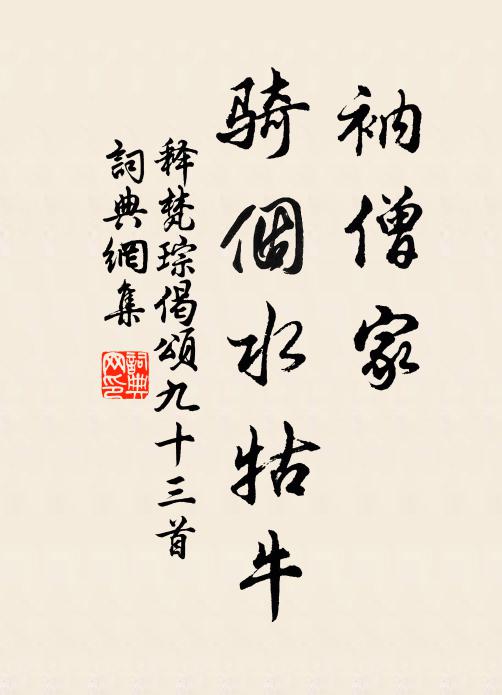 衲僧家
騎個水牯牛
释梵琮偈頌九十三首
詞典網集
詞典網印